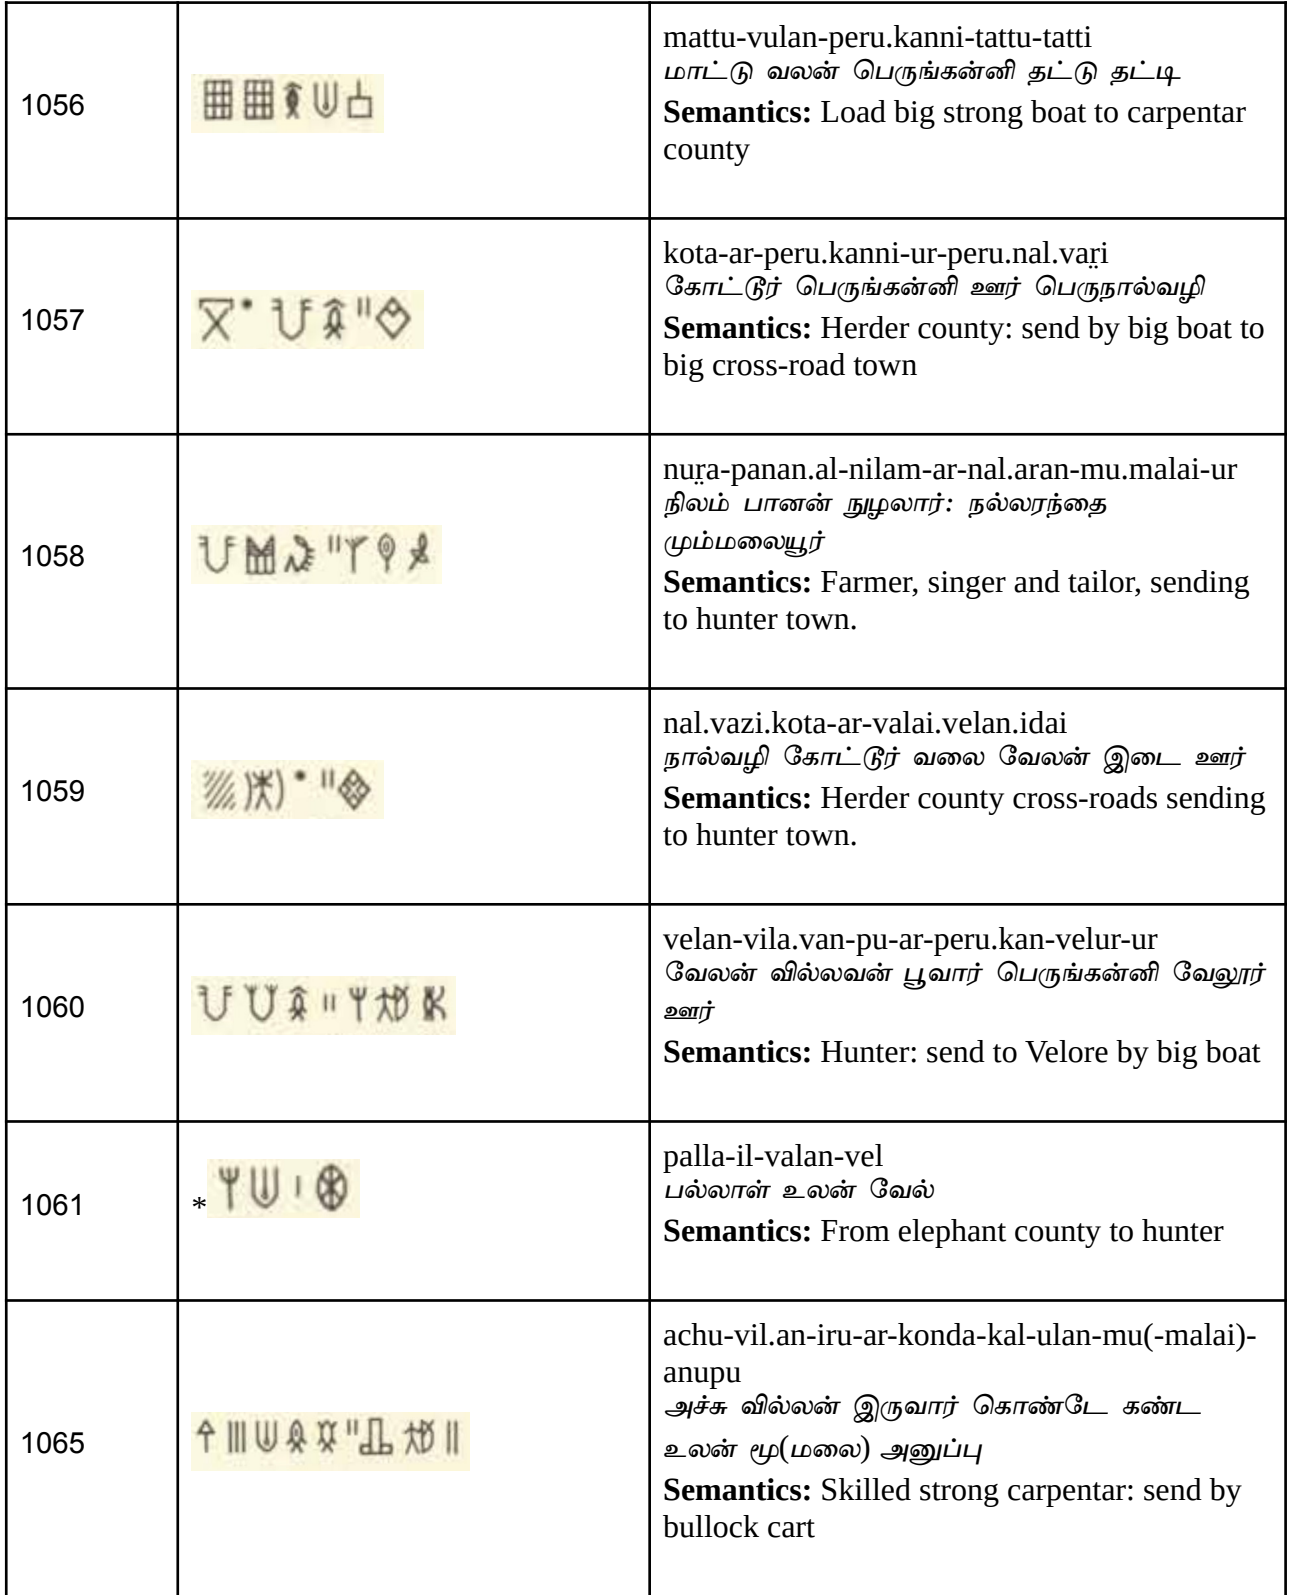 1056
mattu-vulan-peru.kanni-tattu-tatti
மாட்டு வலன் பெருங்கன்னி தட்டு தட்டி
Semantics: Load big strong boat to carpentar
county
1057
kota-ar-peru.kanni-ur-peru.nal.var̤i
கோட்டூர் பெருங்கன்னி ஊர் பெருநால்வழி
Semantics: Herder county: send by big boat to
big cross-road town
1058
nur̤a-panan.al-nilam-ar-nal.aran-mu.malai-ur
நிலம் பானன் நுழலார்: நல்லரந்தை
மும்மலையூர்
Semantics: Farmer, singer and tailor, sending
to hunter town.
1059
nal.vazi.kota-ar-valai.velan.idai
நால்வழி கோட்டூர் வலை வேலன் இடை ஊர்
Semantics: Herder county cross-roads sending
to hunter town.
1060
velan-vila.van-pu-ar-peru.kan-velur-ur
வேலன் வில்லவன் பூவார் பெருங்கன்னி வேலூர்
ஊர்
Semantics: Hunter: send to Velore by big boat
1061
*
palla-il-valan-vel
பல்லாள் உலன் வேல்
Semantics: From elephant county to hunter
1065
achu-vil.an-iru-ar-konda-kal-ulan-mu(-malai)-
anupu
அச்சு வில்லன் இருவார் கொண்டே கண்ட
உலன் மூ(மலை) அனுப்பு
Semantics: Skilled strong carpentar: send by
bullock cart